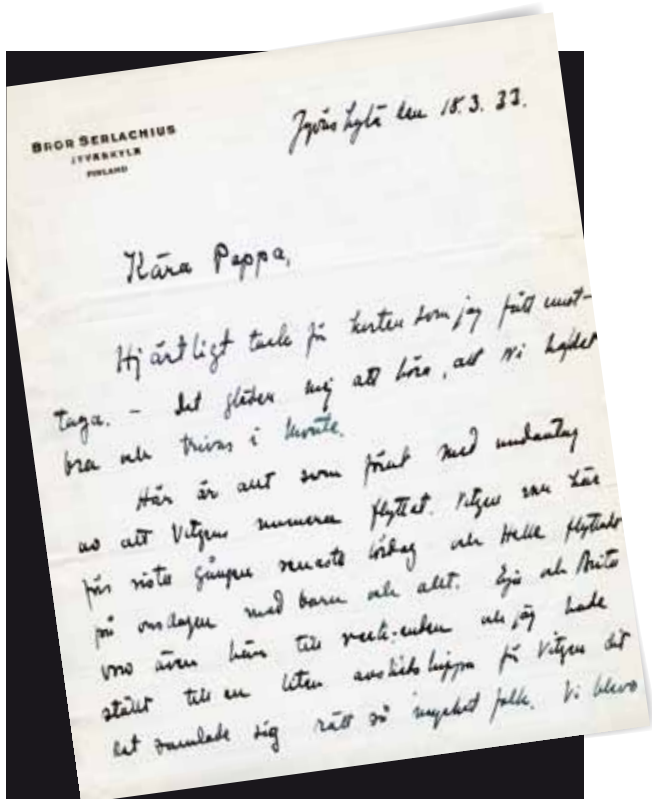 BROR SERLACHIUS
JYVÄSKYLÄ
FINLAND
Jyväskylä den 18.3.33.
Kära Pappa,
Hjärtligt tack för korten som jag fått mot-
taga. – Det gläder mig att höra, att Ni
bra och trivas i
Här är allt som förut med undantag
av att Vitzens numera flyttat. Vitzen var här
för sista gången senaste lördag och Helle flyttade
på onsdagen med barn och allt. och Brita
voro även här till week-enden och jag hade
ställt till en liten avskeds för Vitzen dit
det samlade sig rätt så mycket folk. Vi blevo